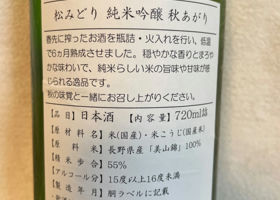 松みどり 純米吟醸 秋あがり
春先に搾ったお酒を瓶詰・火入れを行い、低温
で6ヵ月熟成させました。穏やかな香りとまろや
かな味わいで、純米らしい米の旨味や甘味が感
じられる逸品です。
秋の味覚と一緒にお召し上がりください。
【品目】日本酒 【内容量】720ml詰
【原材料名】米(国産)・米こうじ(国産米)
【原料米】長野県産「美山錦」100%
【精米歩合】55%
【アルコール分】15度以上16度未満
【製造年月】胴ラベルに記載